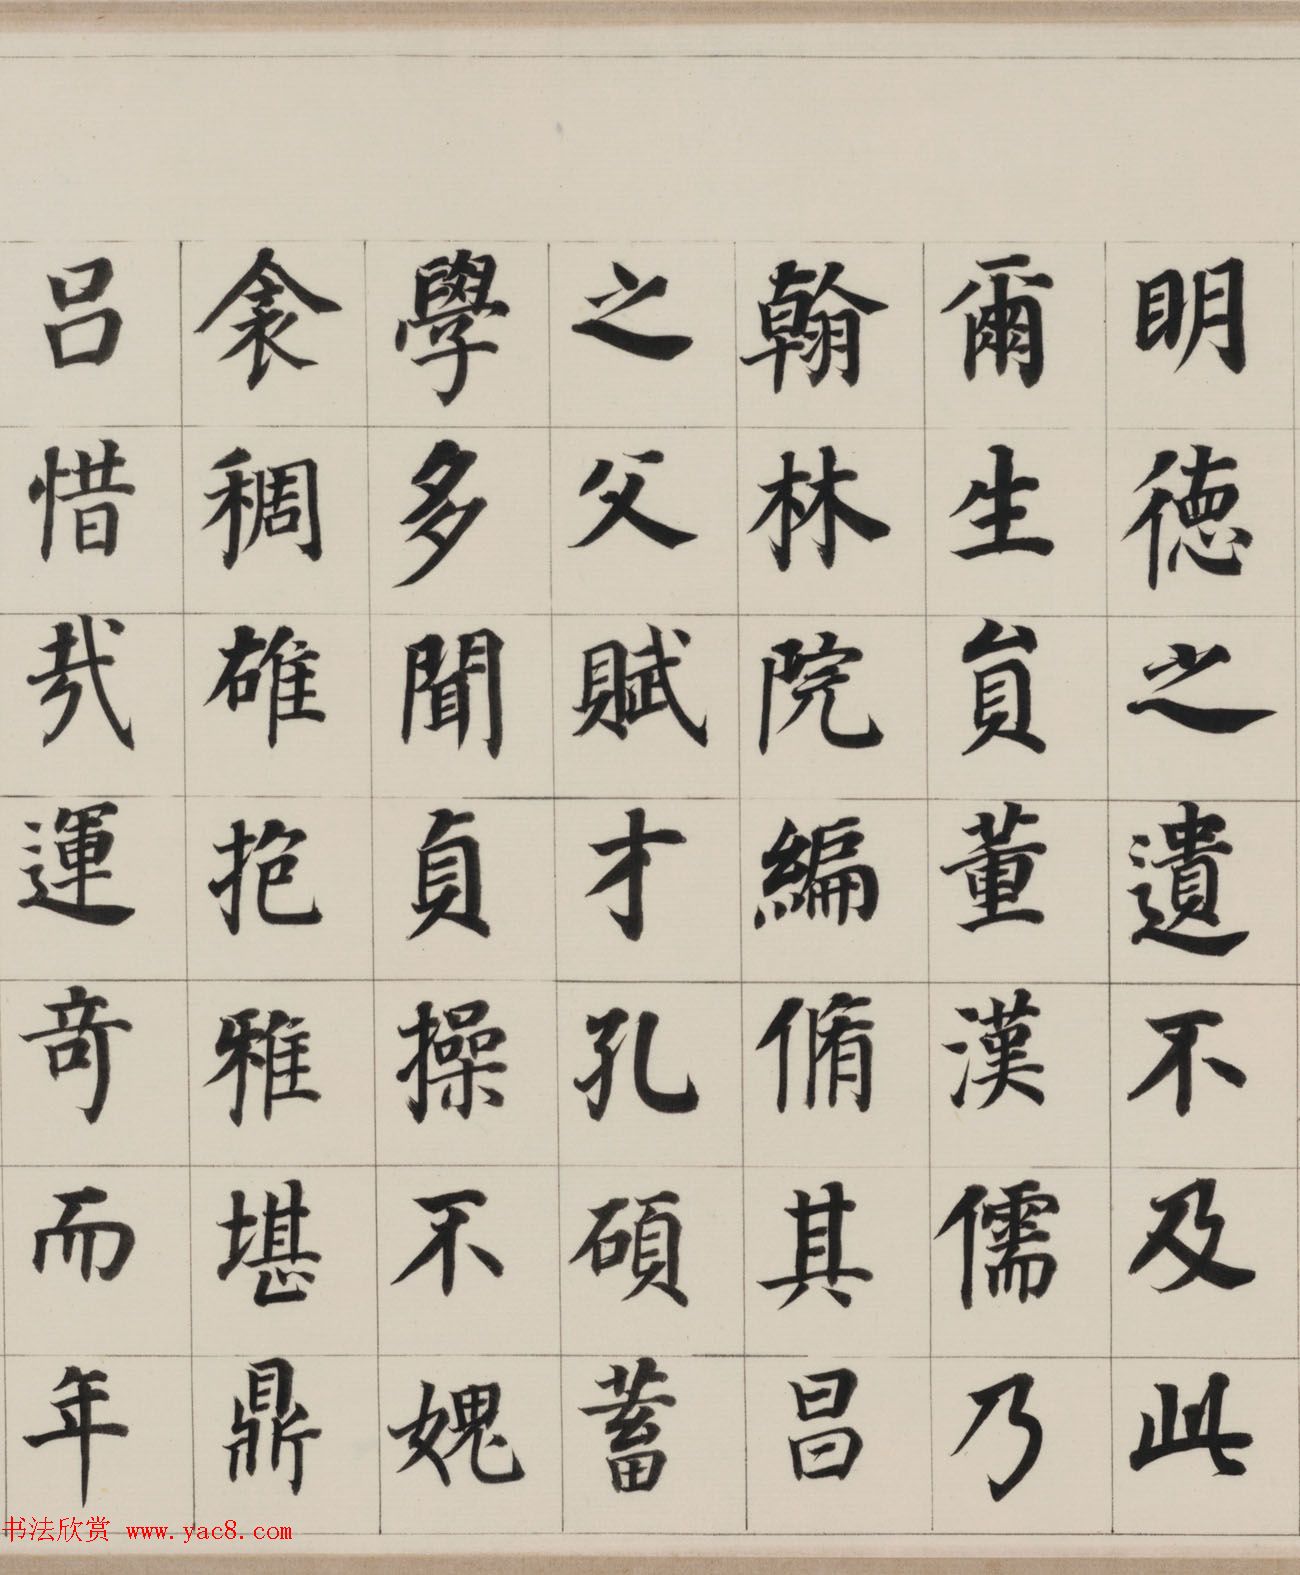 明德之遺不及此
爾生員董漢儒乃
翰林院編脩其昌
之父賦才孔碩蓄
學多聞貞操不媿
衾稠雄抱雅堪鼎
呂惜哉運奇而年
书法欣赏 www.yac8.com